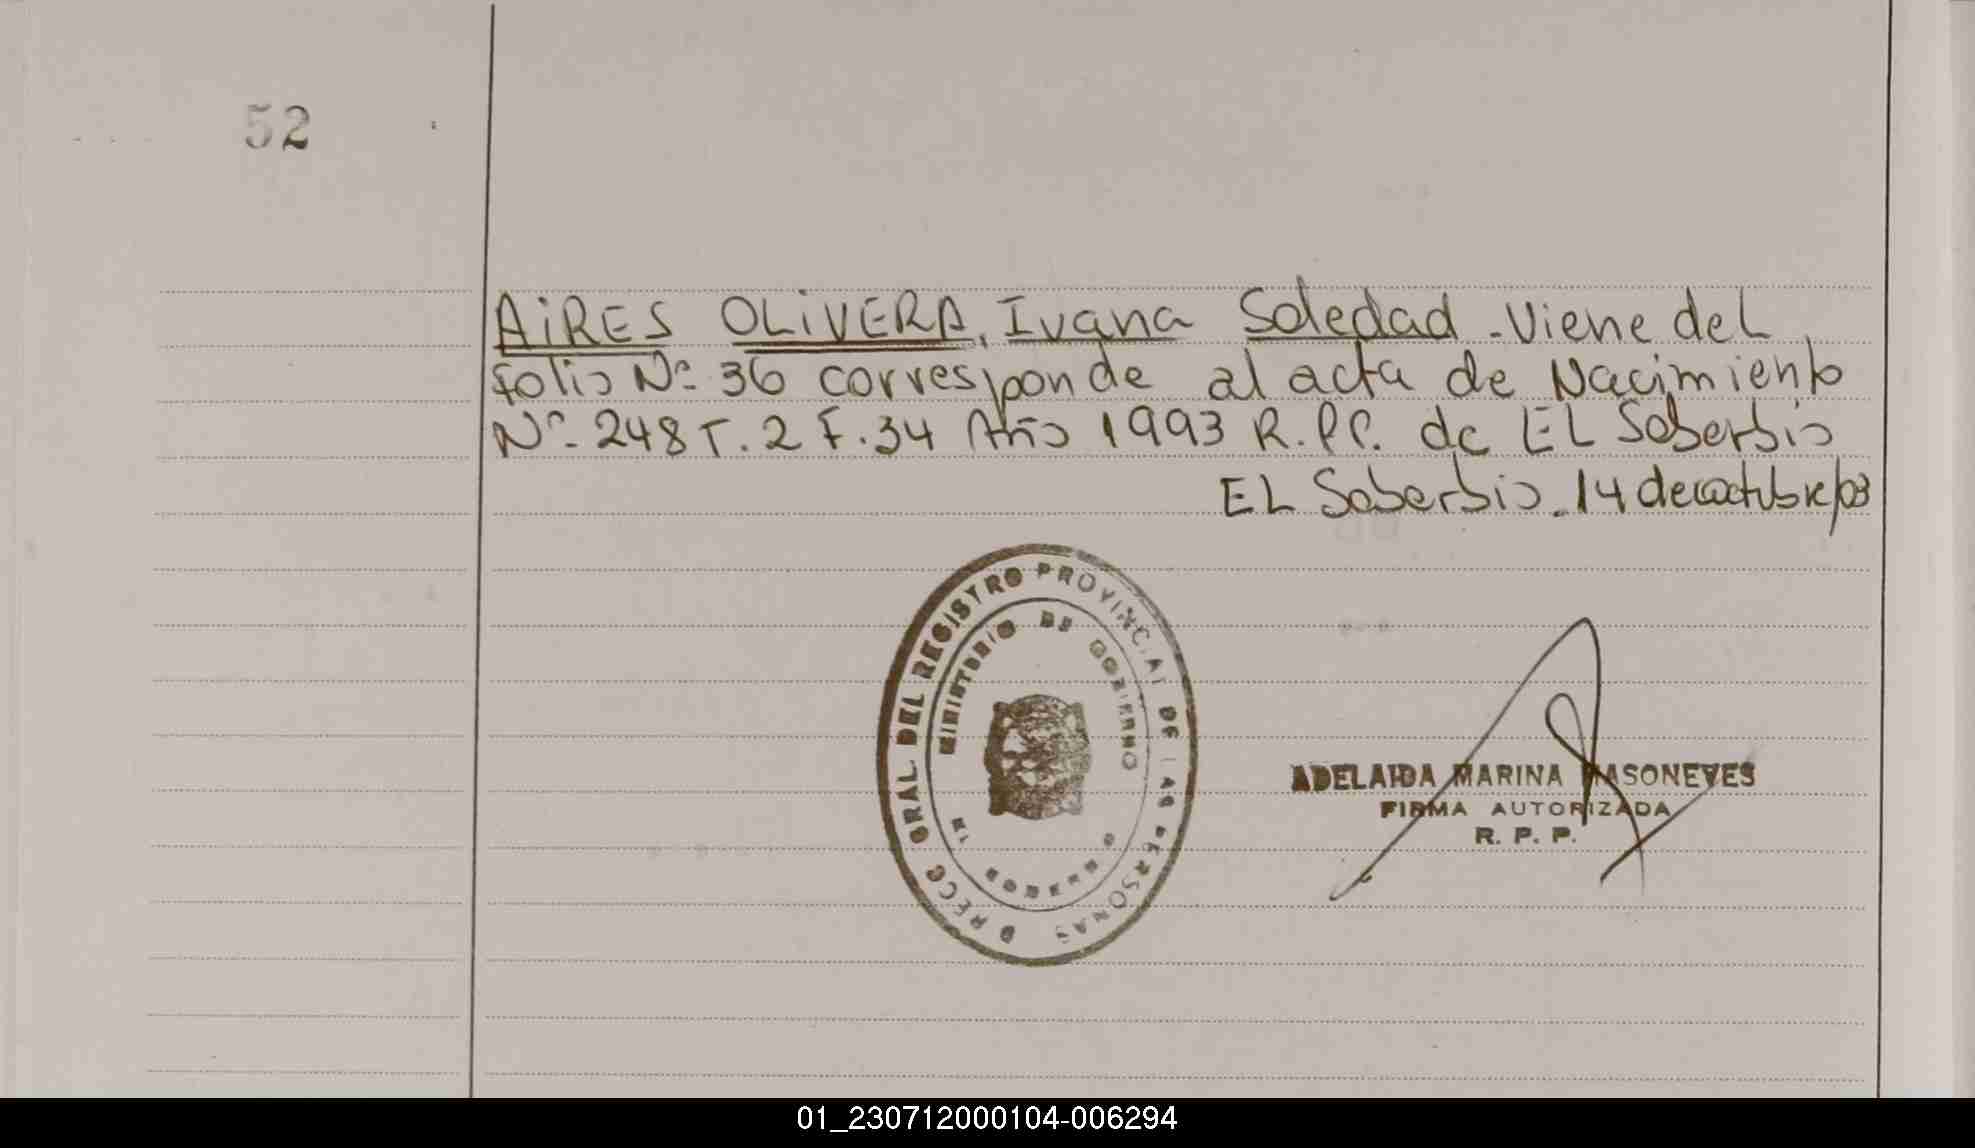 52
AiRES OLiVERA, Ivana Soledad - Viene del
folio Nº 36 corresponde al acta de Nacimiento
Nº 248 T. 2 F. 34 Año 1993 R.P.P. de EL Soberbio
EL Soberbio - 14 de octubre/03
GRAL DEL REGISTRO PROVINCIAL DE LAS PERSONAS
MINISTERIO DE GOBIERNO
ADELAIDA MARINA MASONEVES
FIRMA AUTORIZADA
R. P. P.
01_230712000104-006294